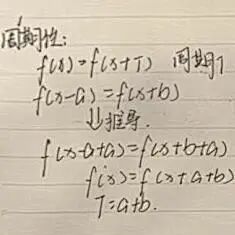 周期性:
f(x)=f(x+T) 周期T
f(x-a)=f(x+b)
⇓推导.
f(x-a+a)=f(x+b+a)
f(x)=f(x+a+b)
T=a+b.